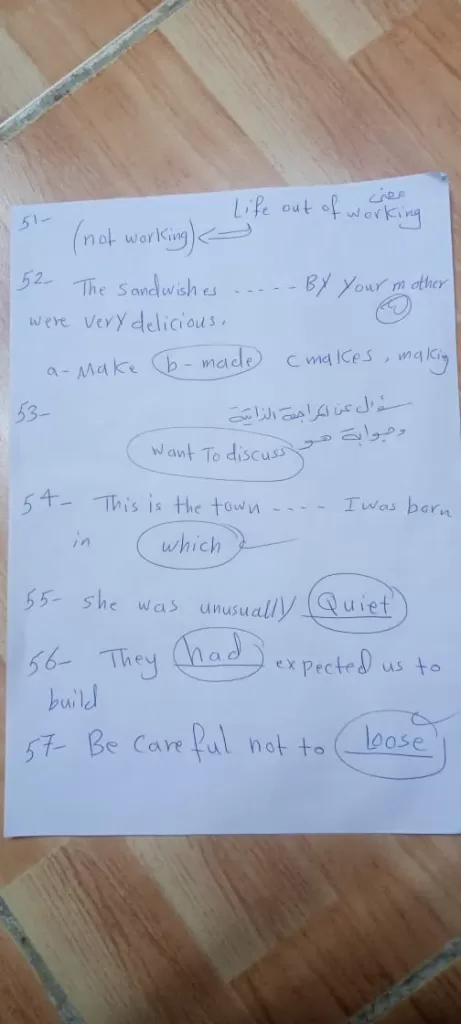 51- Life out of working معنى
(not working)
52- The sandwishes ..... By your mother
were very delicious.
a- Make b- made c makes, makig
53- سؤال عن المراجعة الذاتية
وجوابة هو
want To discuss
54- This is the town .... I was born
in which
55- she was unusually Quiet
56- They had expected us to
build
57- Be careful not to loose